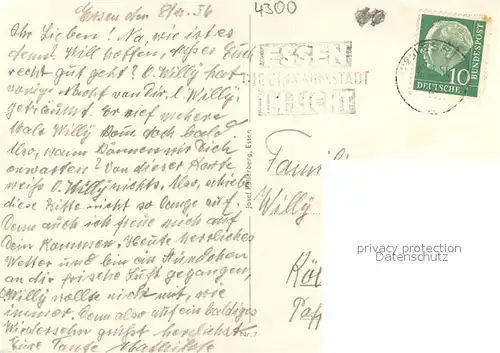 Essen den 8/4.56
Ihr Lieben! Na, wie ist es
denn? Will hoffen, dass es Euch
recht gut geht? O. Willy hat
vorige Nacht von Dir, l. Willy,
geträumt. Er rief mehere
Male Willy komm doch bald
Also, wann können wir Dich
erwarten? Von dieser Karte
weiß O. Willy nichts. Also, schieb
diese Bitte nicht so lange auf.
Denn auch ich freue mich auf
Dein Kommen. Heute herrliches
Wetter und bin ein Stündchen
an die frische Luft gegangen,
Willy wollte nicht mit, wie
immer. Denn also auf ein baldiges
Wiedersehn grüßt herzlichst
Eure Tante Mathilde
4300
ESSEN
DIE EINKAUFSSTADT
IM LICHT
DEUTSCHE BUNDESPOST
10
Essen
Nr. 7
Famil
Willy
Köl
privacy protection
Datenschutz